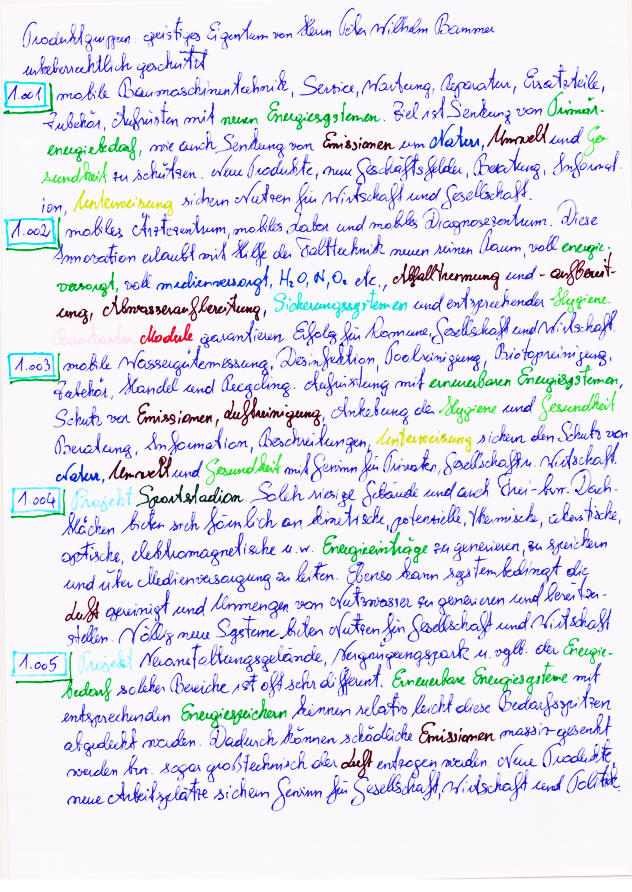 Produktgruppen: geistiges Eigentum von Herrn Peter Wilhelm Bammer
urheberrechtlich geschützt
1.001 mobile Baumaschinentechnik, Service, Wartung, Reparatur, Ersatzteile,
Zubehör, Aufrüsten mit neuen Energiesystemen. Ziel ist Senkung von Primär-
energiebedarf, wie auch Senkung von Emissionen um Natur, Umwelt und Ge-
sundheit zu schützen. Neue Produkte, neue Geschäftsfelder, Beratung, Informat-
ion, Unterweisung sichern Nutzen für Wirtschaft und Gesellschaft.
1.002 mobiles Ärztezentrum, mobiles Labor und mobiles Diagnosezentrum. Diese
Innovation erlaubt mit Hilfe der Falttechnik neuen reinen Raum, voll energie-
versorgt, voll medienversorgt, H2O, N, O2 etc., Abfalltrennung und -aufbereit-
ung, Abwasseraufbereitung, Sicherungssystemen und entsprechender Hygiene.
Module garantieren Erfolg für Komune, Gesellschaft und Wirtschaft.
1.003 mobile Wassergütemessung, Desinfektion, Poolreinigung, Biotopreinigung,
Zubehör, Handel und Recycling. Aufrüstung mit erneuerbaren Energiesystemen,
Schutz vor Emissionen, Luftreinigung, Anhebung der Hygiene und Gesundheit
Beratung, Information, Beschreibungen, Unterweisung sichern den Schutz von
Natur, Umwelt und Gesundheit mit Gewinn für Privaten, Gesellschaft u. Wirtschaft.
1.004 Projekt Sportstadion. Solch riesige Gebäude und auch Frei- bzw. Dach-
flächen bieten sich förmlich an kinetische, potenzielle, thermische, akustische,
optische, elektromagnetische u.w. Energieeinträge zu generieren, zu speichern
und über Medienversorgung zu leiten. Ebenso kann systembedingt die
Luft gereinigt und Unmengen von Nutzwasser zu generieren und bereitzu-
stellen. Völlig neue Systeme bieten Nutzen für Gesellschaft und Wirtschaft
1.005 Projekt Veranstaltungsgelände, Vergnügungspark u. vglb. der Energie-
bedarf solcher Bereiche ist oft sehr different. Erneuerbare Energiesysteme mit
entsprechenden Energiespeichern können relativ leicht diese Bedarfsspitzen
abgedeckt werden. Dadurch können schädliche Emissionen massiv gesenkt
werden bzw. sogar großtechnisch der Luft entzogen werden. Neue Produkte,
neue Arbeitsplätze sichern Gewinn für Gesellschaft, Wirtschaft und Politik.